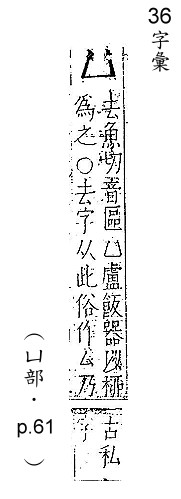 36
字彙
凵
去魚切音區凵盧飯器以柳
為之○去字从此俗作厶乃
古私
字
（凵部・p.61）